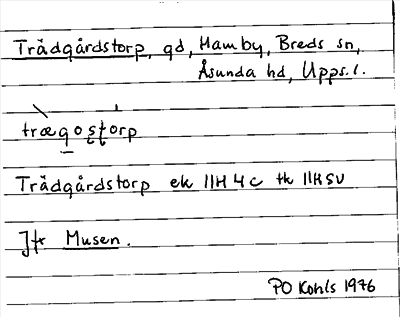 Trädgårdstorp, gd, Hamby, Breds sn,
Åsunda hd, Upps. l.
trægostorp
Trädgårdstorp ek 11H4c tk 11HSV
Jfr Musen.
PO Kohls 1976